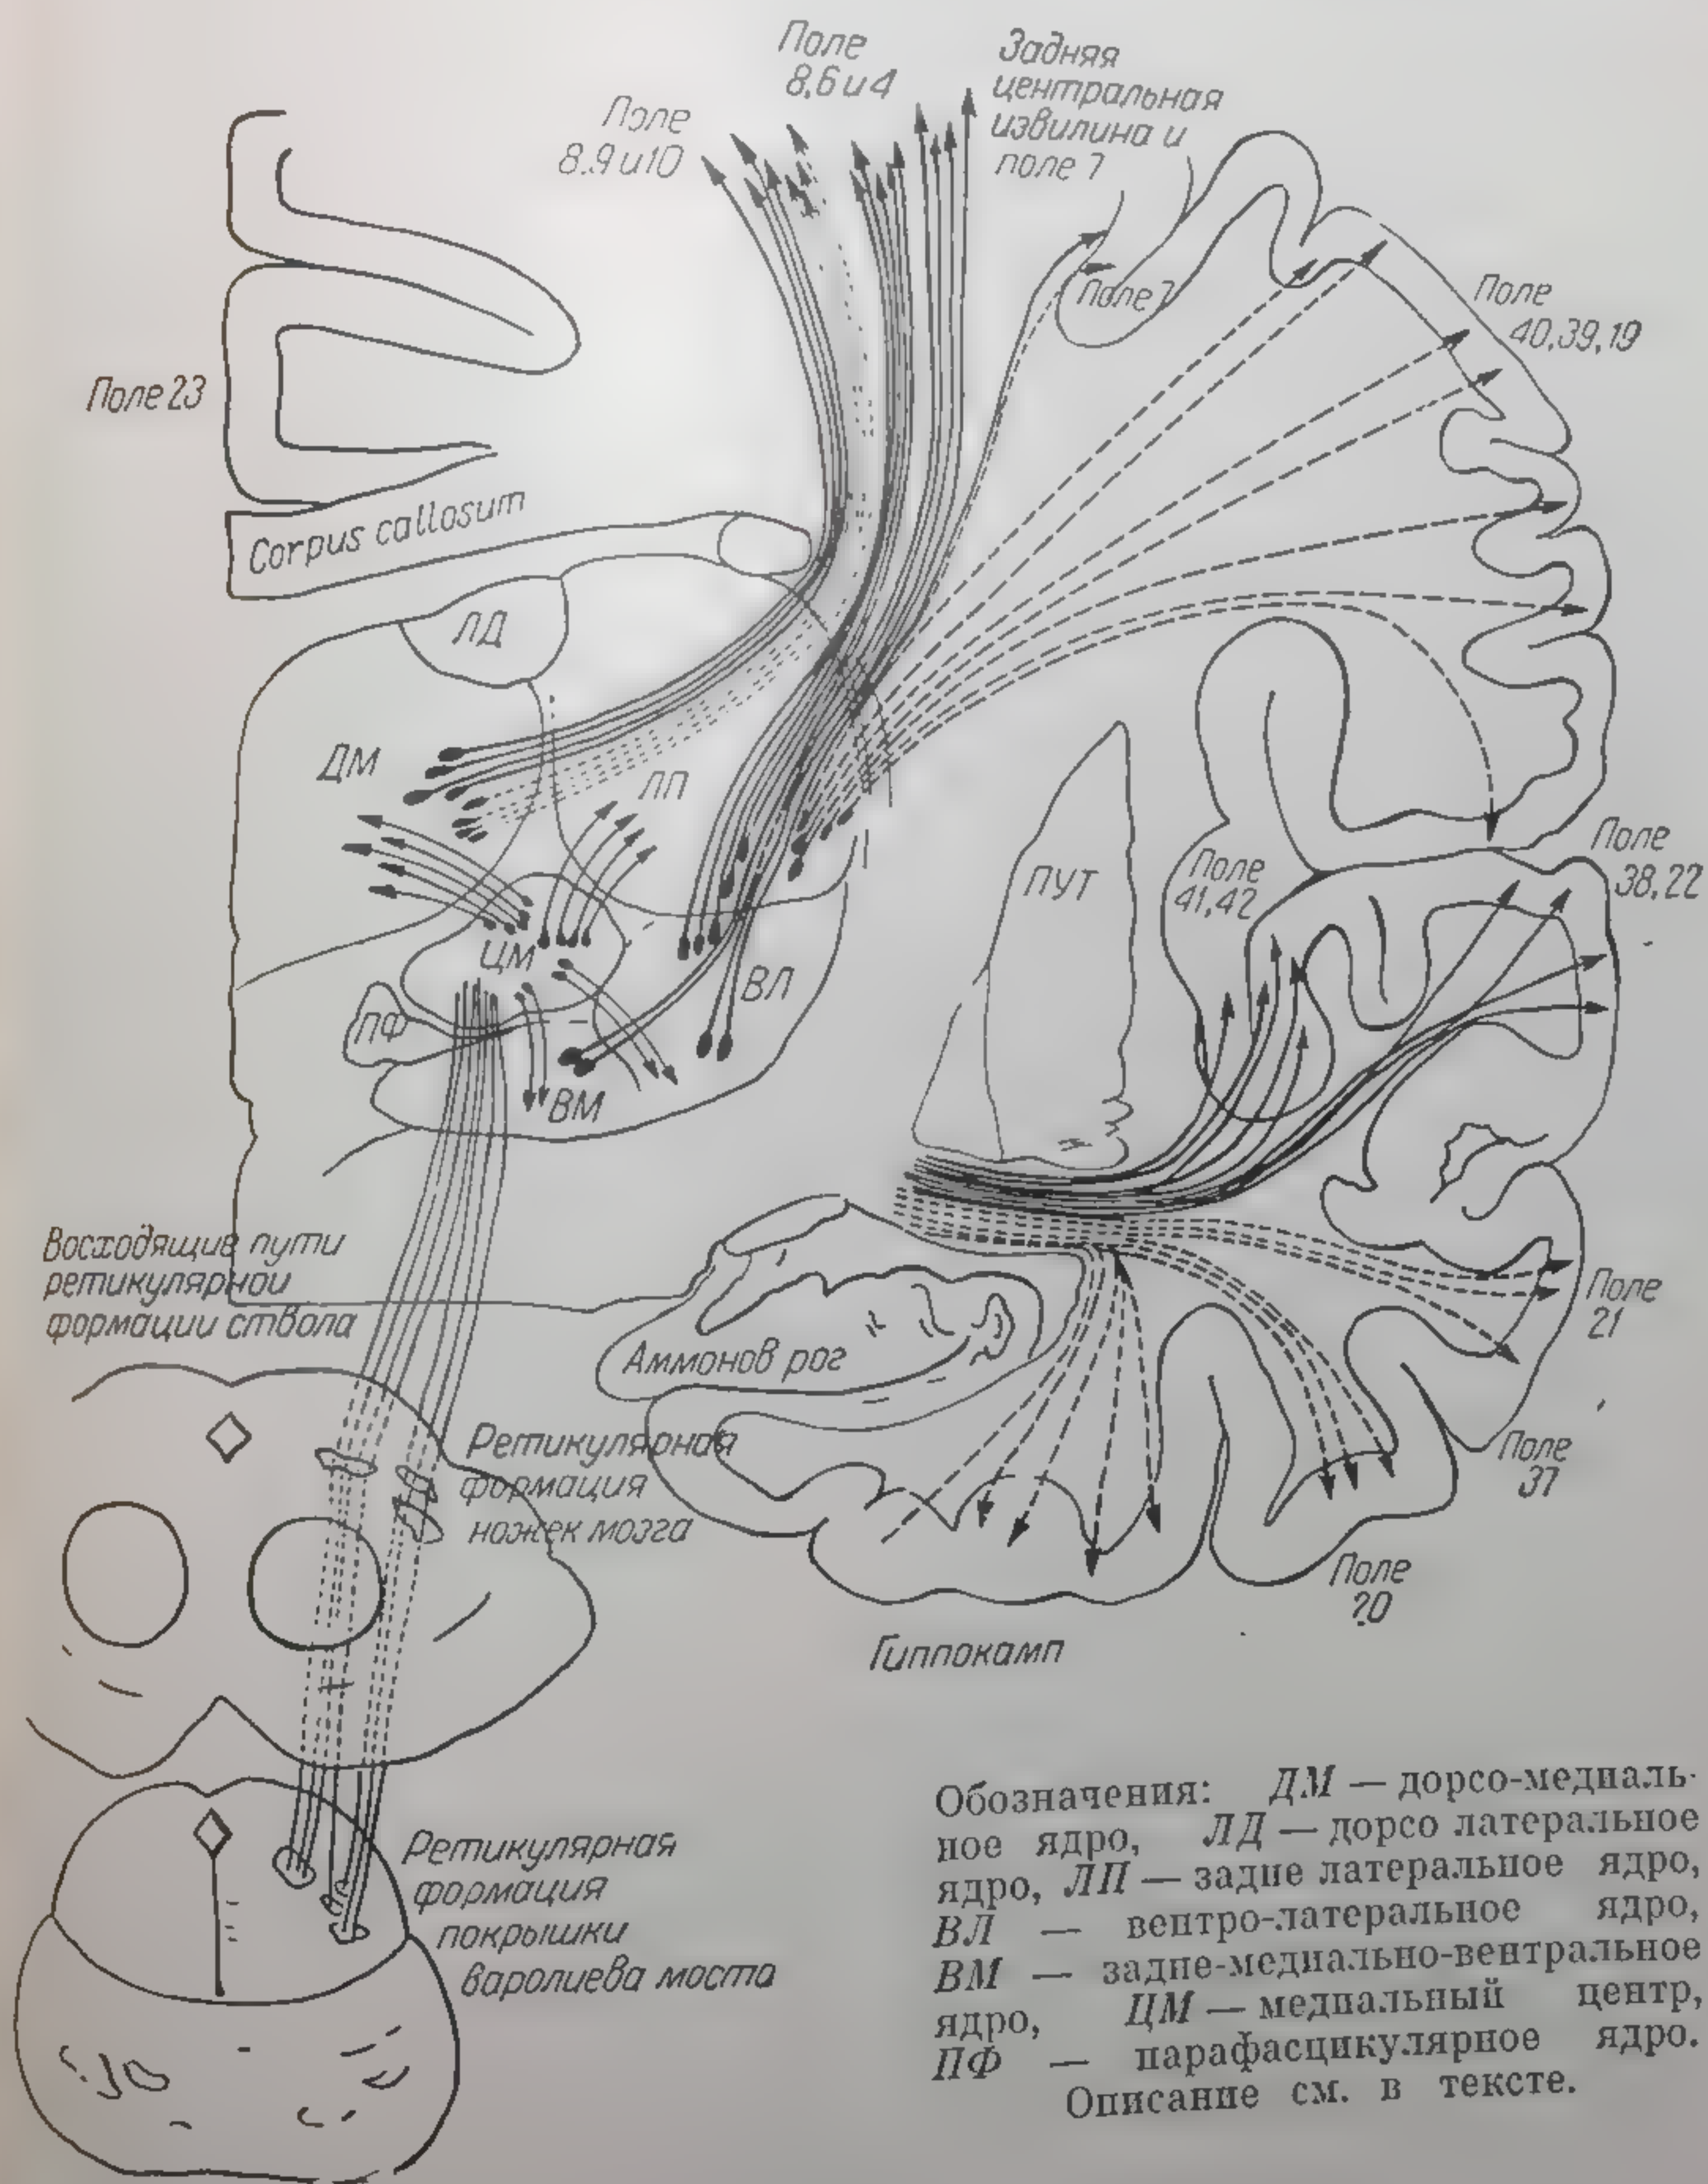 Поле
8,6 и 4
Задняя
центральная
извилина и
поле 7
Поле
8.9 и 10
Поле 7
Поле
40,39,19
Поле 23
Corpus callosum
ЛД
ДМ
ЛП
Поле
38,22
ПУТ
Поле
41,42
ЦМ
ВЛ
ПФ
ВМ
Восходящие пути
ретикулярной
формации ствола
Поле
21
Аммонов рог
Ретикулярная
формация
ножек мозга
Поле
37
Поле
20
Гиппокамп
Ретикулярная
формация
покрышки
варолиева моста
Обозначения: ДМ — дорсо-медиаль-
ное ядро, ЛД — дорсо латеральное
ядро, ЛП — задне латеральное ядро,
ВЛ — вентро-латеральное ядро,
ВМ — задне-медиально-вентральное
ядро, ЦМ — медиальный центр,
ПФ — парафасцикулярное ядро.
Описание см. в тексте.